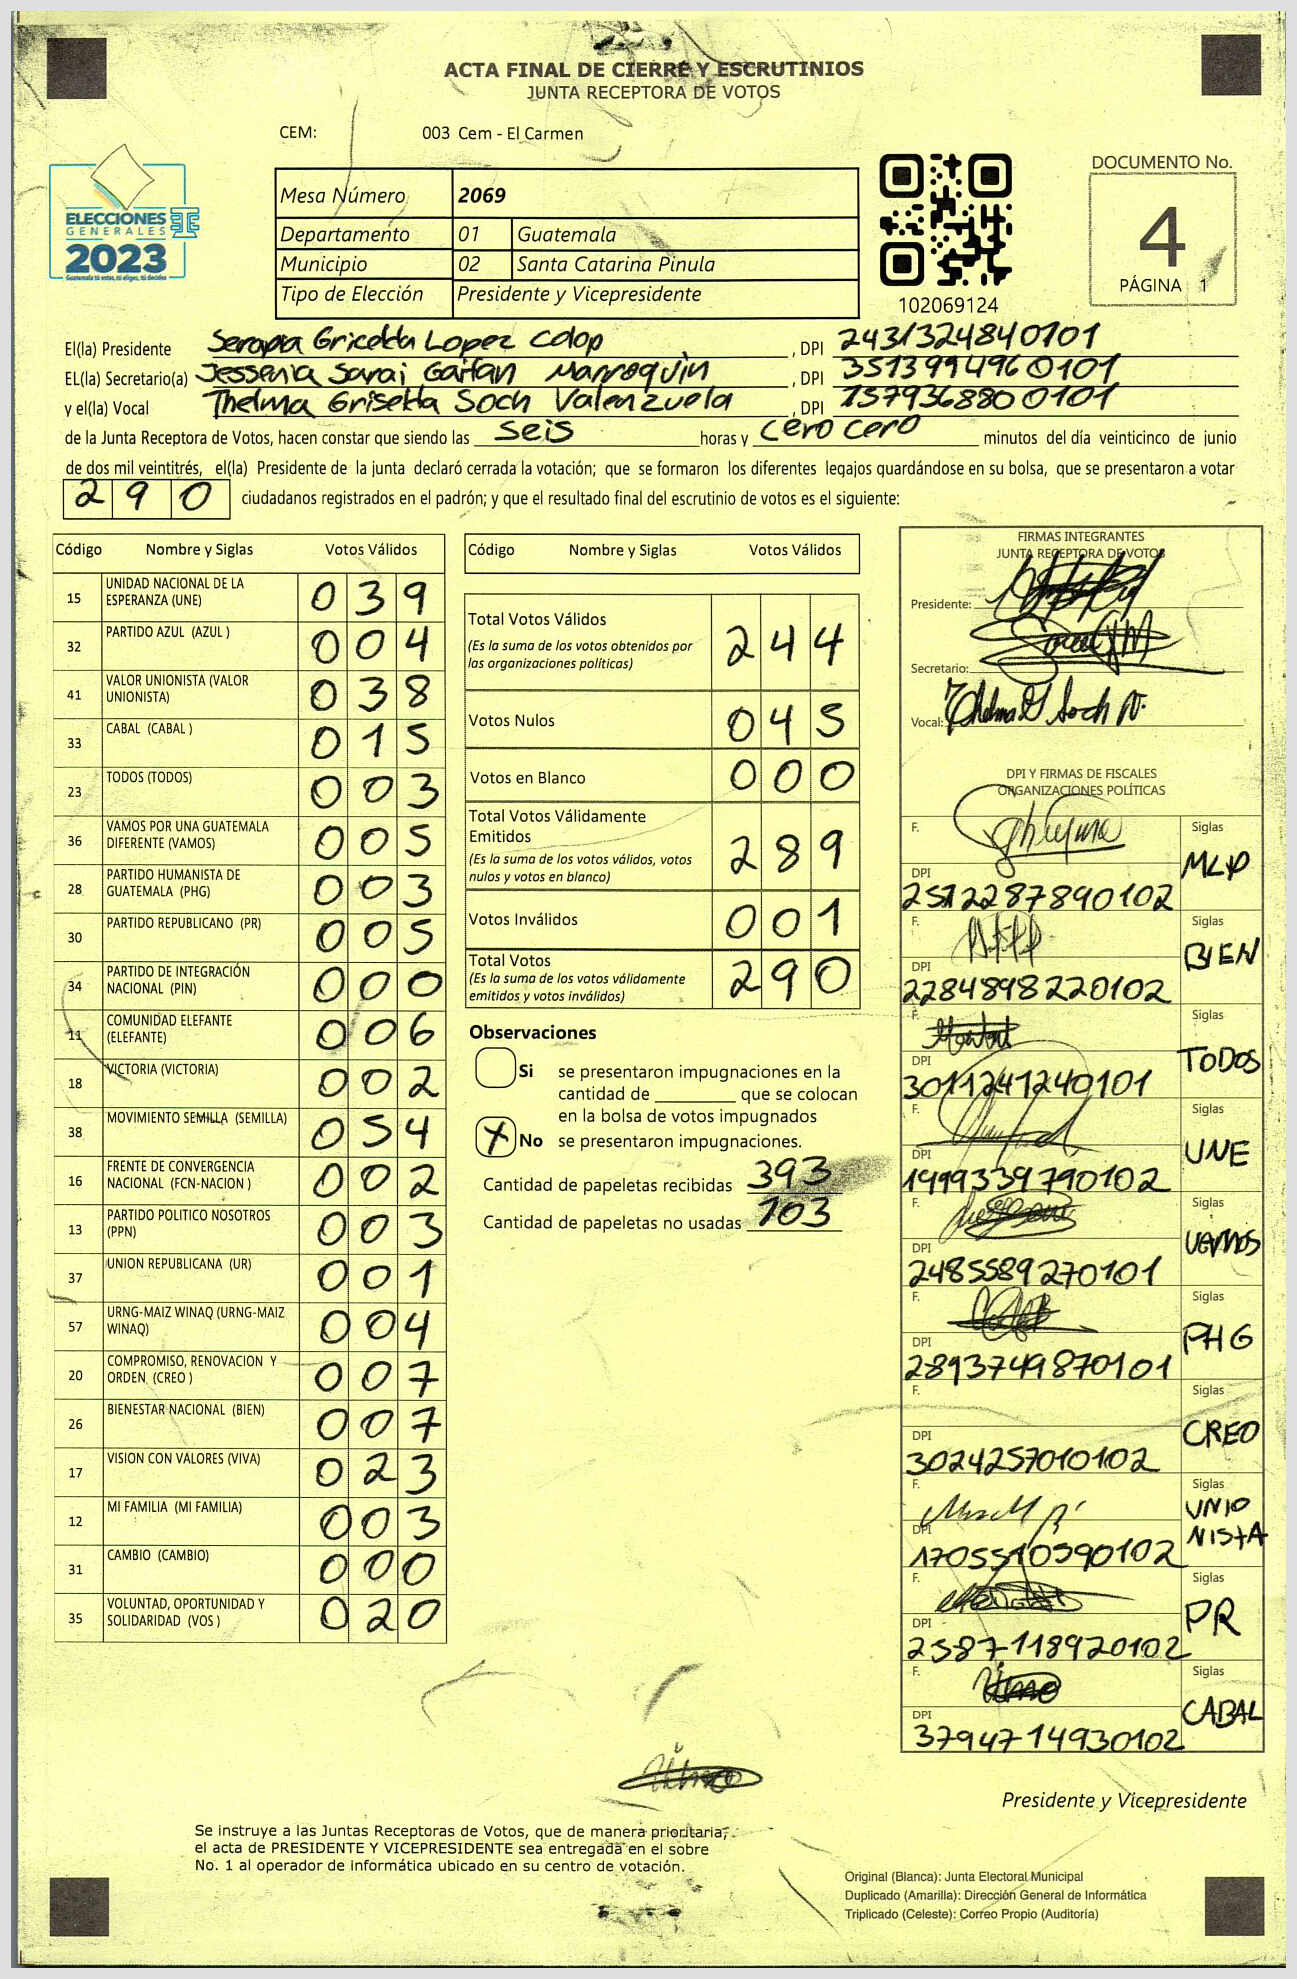 ACTA FINAL DE CIERRE Y ESCRUTINIOS
JUNTA RECEPTORA DE VOTOS
CEM: 003 Cem - El Carmen
ELECCIONES
GENERALES
2023
Mesa Número 2069
Departamento 01 Guatemala
Municipio 02 Santa Catarina Pinula
Tipo de Elección Presidente y Vicepresidente
102069124
DOCUMENTO No.
4
PÁGINA 1
El(la) Presidente Gricelda Lopez Colop , DPI 2431324840101
EL(la) Secretario(a) Jessenia Sarai Gaitan Marroquin , DPI 3513994960101
y el(la) Vocal Thelma Griselda Soch Valenzuela , DPI 1579368800101
de la Junta Receptora de Votos, hacen constar que siendo las seis horas y cero cero minutos del día veinticinco de junio
de dos mil veintitrés, el(la) Presidente de la junta declaró cerrada la votación; que se formaron los diferentes legajos guardándose en su bolsa, que se presentaron a votar
290 ciudadanos registrados en el padrón; y que el resultado final del escrutinio de votos es el siguiente:
Código Nombre y Siglas Votos Válidos
15 UNIDAD NACIONAL DE LA ESPERANZA (UNE) 039
32 PARTIDO AZUL (AZUL ) 004
41 VALOR UNIONISTA (VALOR UNIONISTA) 038
33 CABAL (CABAL ) 015
23 TODOS (TODOS) 003
36 VAMOS POR UNA GUATEMALA DIFERENTE (VAMOS) 005
28 PARTIDO HUMANISTA DE GUATEMALA (PHG) 003
30 PARTIDO REPUBLICANO (PR) 005
34 PARTIDO DE INTEGRACIÓN NACIONAL (PIN) 000
11 COMUNIDAD ELEFANTE (ELEFANTE) 006
18 VICTORIA (VICTORIA) 002
38 MOVIMIENTO SEMILLA (SEMILLA) 054
16 FRENTE DE CONVERGENCIA NACIONAL (FCN-NACION ) 002
13 PARTIDO POLITICO NOSOTROS (PPN) 003
37 UNION REPUBLICANA (UR) 001
57 URNG-MAIZ WINAQ (URNG-MAIZ WINAQ) 004
20 COMPROMISO, RENOVACION Y ORDEN (CREO ) 007
26 BIENESTAR NACIONAL (BIEN) 007
17 VISION CON VALORES (VIVA) 023
12 MI FAMILIA (MI FAMILIA) 003
31 CAMBIO (CAMBIO) 000
35 VOLUNTAD, OPORTUNIDAD Y SOLIDARIDAD (VOS ) 020
Código Nombre y Siglas Votos Válidos
Total Votos Válidos 244
(Es la suma de los votos obtenidos por
las organizaciones políticas)
Votos Nulos 045
Votos en Blanco 000
Total Votos Válidamente
Emitidos 289
(Es la suma de los votos válidos, votos
nulos y votos en blanco)
Votos Inválidos 001
Total Votos 290
(Es la suma de los votos válidamente
emitidos y votos inválidos)
Observaciones
Si se presentaron impugnaciones en la
cantidad de ________ que se colocan
en la bolsa de votos impugnados
X No se presentaron impugnaciones.
Cantidad de papeletas recibidas 393
Cantidad de papeletas no usadas 103
FIRMAS INTEGRANTES
JUNTA RECEPTORA DE VOTOS
Presidente:
Secretario:
Vocal: Thelma G Soch V.
DPI Y FIRMAS DE FISCALES
ORGANIZACIONES POLÍTICAS
F. Siglas MLP
DPI 2512287890102
F. Siglas BIEN
DPI 2284898220102
F. Siglas TODOS
DPI 3011241240101
F. Siglas UNE
DPI 1999339790102
F. Siglas VAMOS
DPI 2485589270101
F. Siglas PHG
DPI 2893749870101
F. Siglas CREO
DPI 3024257010102
F. Siglas UNIO
NISTA
DPI 1705510390102
F. Siglas PR
DPI 2587118920102
F. Siglas CABAL
DPI 3794714930102
Presidente y Vicepresidente
Se instruye a las Juntas Receptoras de Votos, que de manera prioritaria,
el acta de PRESIDENTE Y VICEPRESIDENTE sea entregada en el sobre
No. 1 al operador de informática ubicado en su centro de votación.
Original (Blanca): Junta Electoral Municipal
Duplicado (Amarilla): Dirección General de Informática
Triplicado (Celeste): Correo Propio (Auditoría)